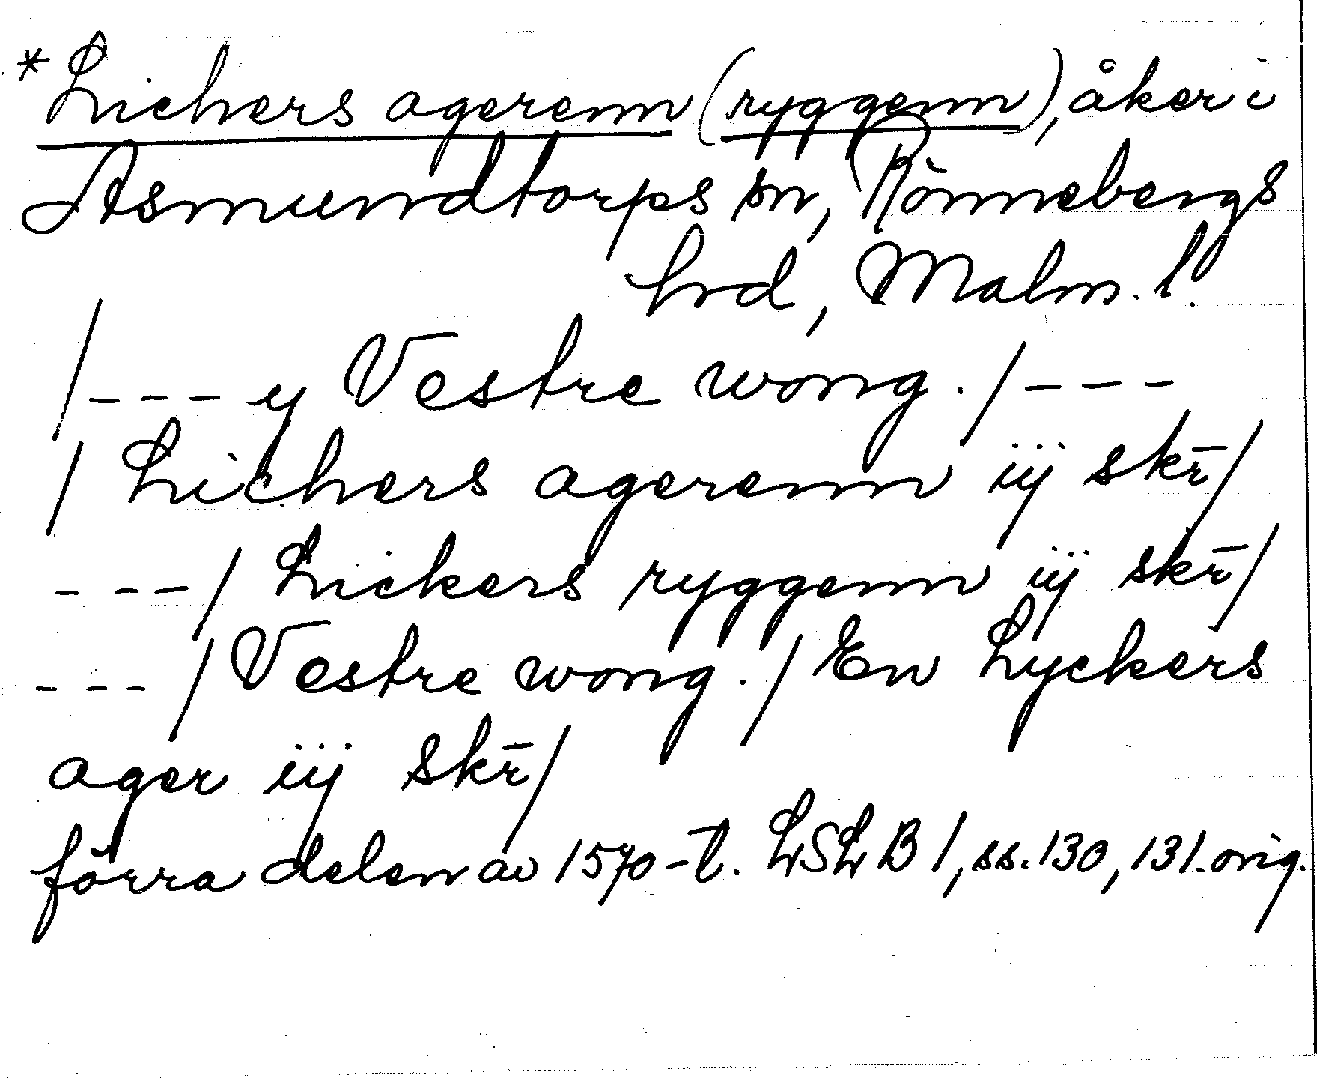 *Lichers agerenn (ryggenn), åker i
Asmundtorps sn, Rönnebergs
hrd, Malm. l.
/--- y Vestre wong. / ---
/ Lichers agerenn iij skr̄ /
--- / Lickers ryggenn iij skr̄ /
--- / Vestre wong. / En Lyckers
ager iij skr̄ /
förra delen av 1570-t. LSLB 1, ss. 130, 131. orig.